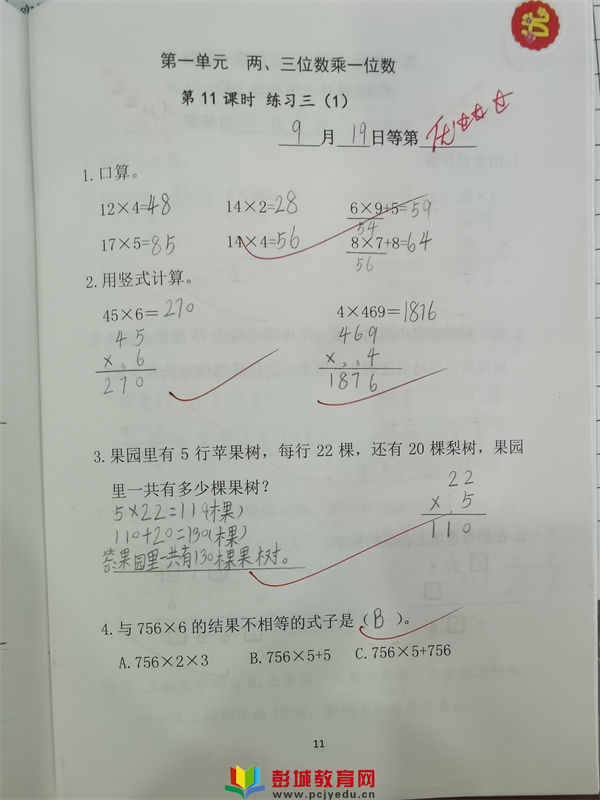 优
第一单元 两、三位数乘一位数
第 11 课时 练习三（1）
9 月 19 日等第 优☆☆☆
1.口算。
12×4=48 14×2=28 6×9+5=59
54
17×5=85 14×4=56 8×7+8=64
56
2.用竖式计算。
45×6=270 4×469=1876
45 469
×6 ×4
270 1876
3.果园里有 5 行苹果树，每行 22 棵，还有 20 棵梨树，果园
里一共有多少棵果树？
22
×5
110
5×22=110(棵)
110+20=130(棵)
答:果园里一共有130棵果树。
4.与 756×6 的结果不相等的式子是（B）。
A.756×2×3 B.756×5+5 C.756×5+756
11
彭城教育网
www.pcjyedu.cn